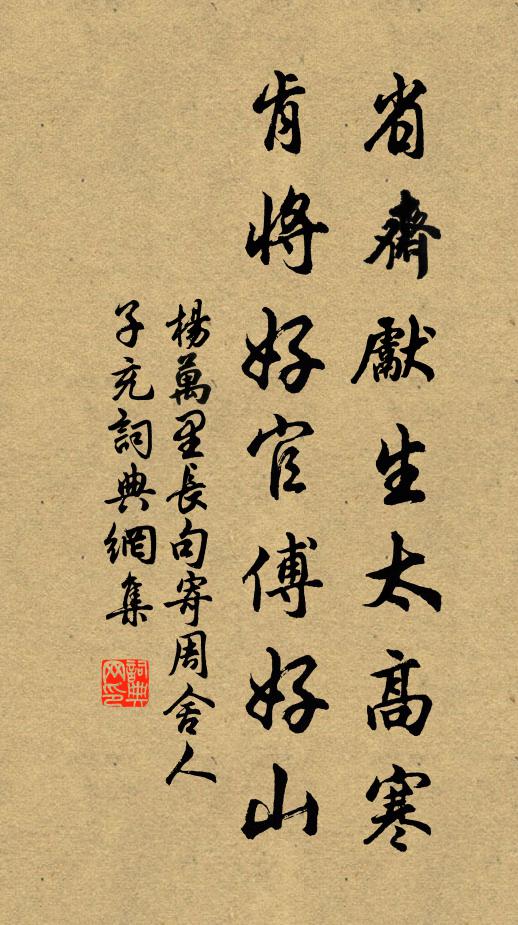 省齋獻生太高寒
肯將好官傅好山
楊萬里長句寄周舍人
子充詞典網集
詞典网印